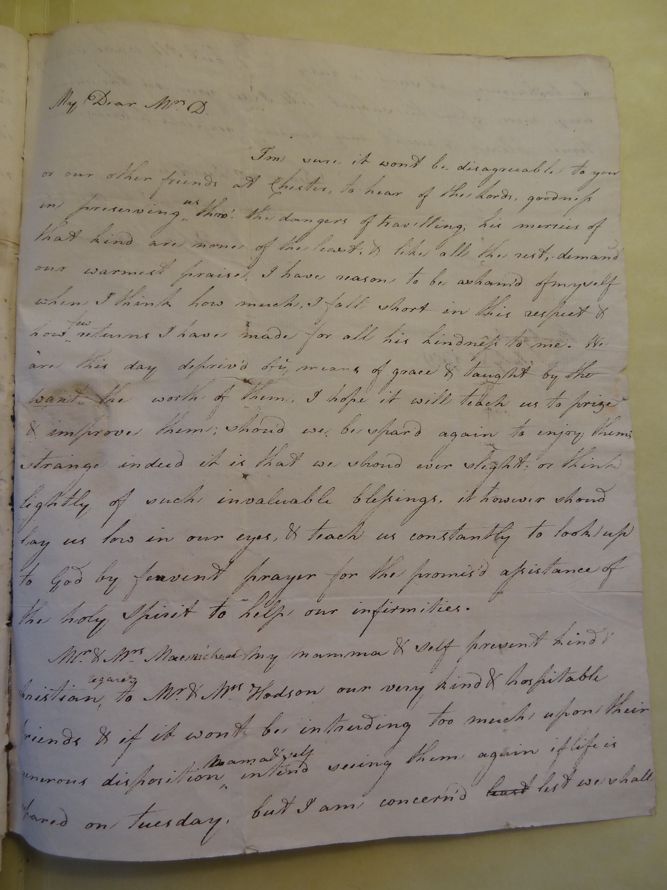 My Dear Mrs D
I'm sure it wont be disagreeable to you
or our other friends at Chester, to hear of the Lords, goodness
in preserving us thro' the dangers of travelling, his mercies of
that kind are none of the least, & like all the rest, demand
our warmest praise, I have reason to be asham'd of myself
when I think how much, I fall short in this respect &
how few returns I have made for all his kindness to me. We
are this day depriv'd of means of grace & taught by the
want the worth of them, I hope it will teach us to prize
& improve them; should we, be spar'd again to enjoy them,
strange indeed it is that we shoud ever slight, or think
lightly, of such invaluable blessings, it however shoud
lay us low in our eyes, & teach us constantly to look up
to God by fervent prayer for the promis'd assistance of
the holy spirit to help our infirmities.
Mr & Mrs my mamma & self present kind &
christian regards, to Mr & Mrs Hodson our very kind & hospitable
friends & if it wont be intruding too much upon their
generous disposition mama & self intend seeing them again if life is
spared on tuesday, but I am concern'd least lest we shall